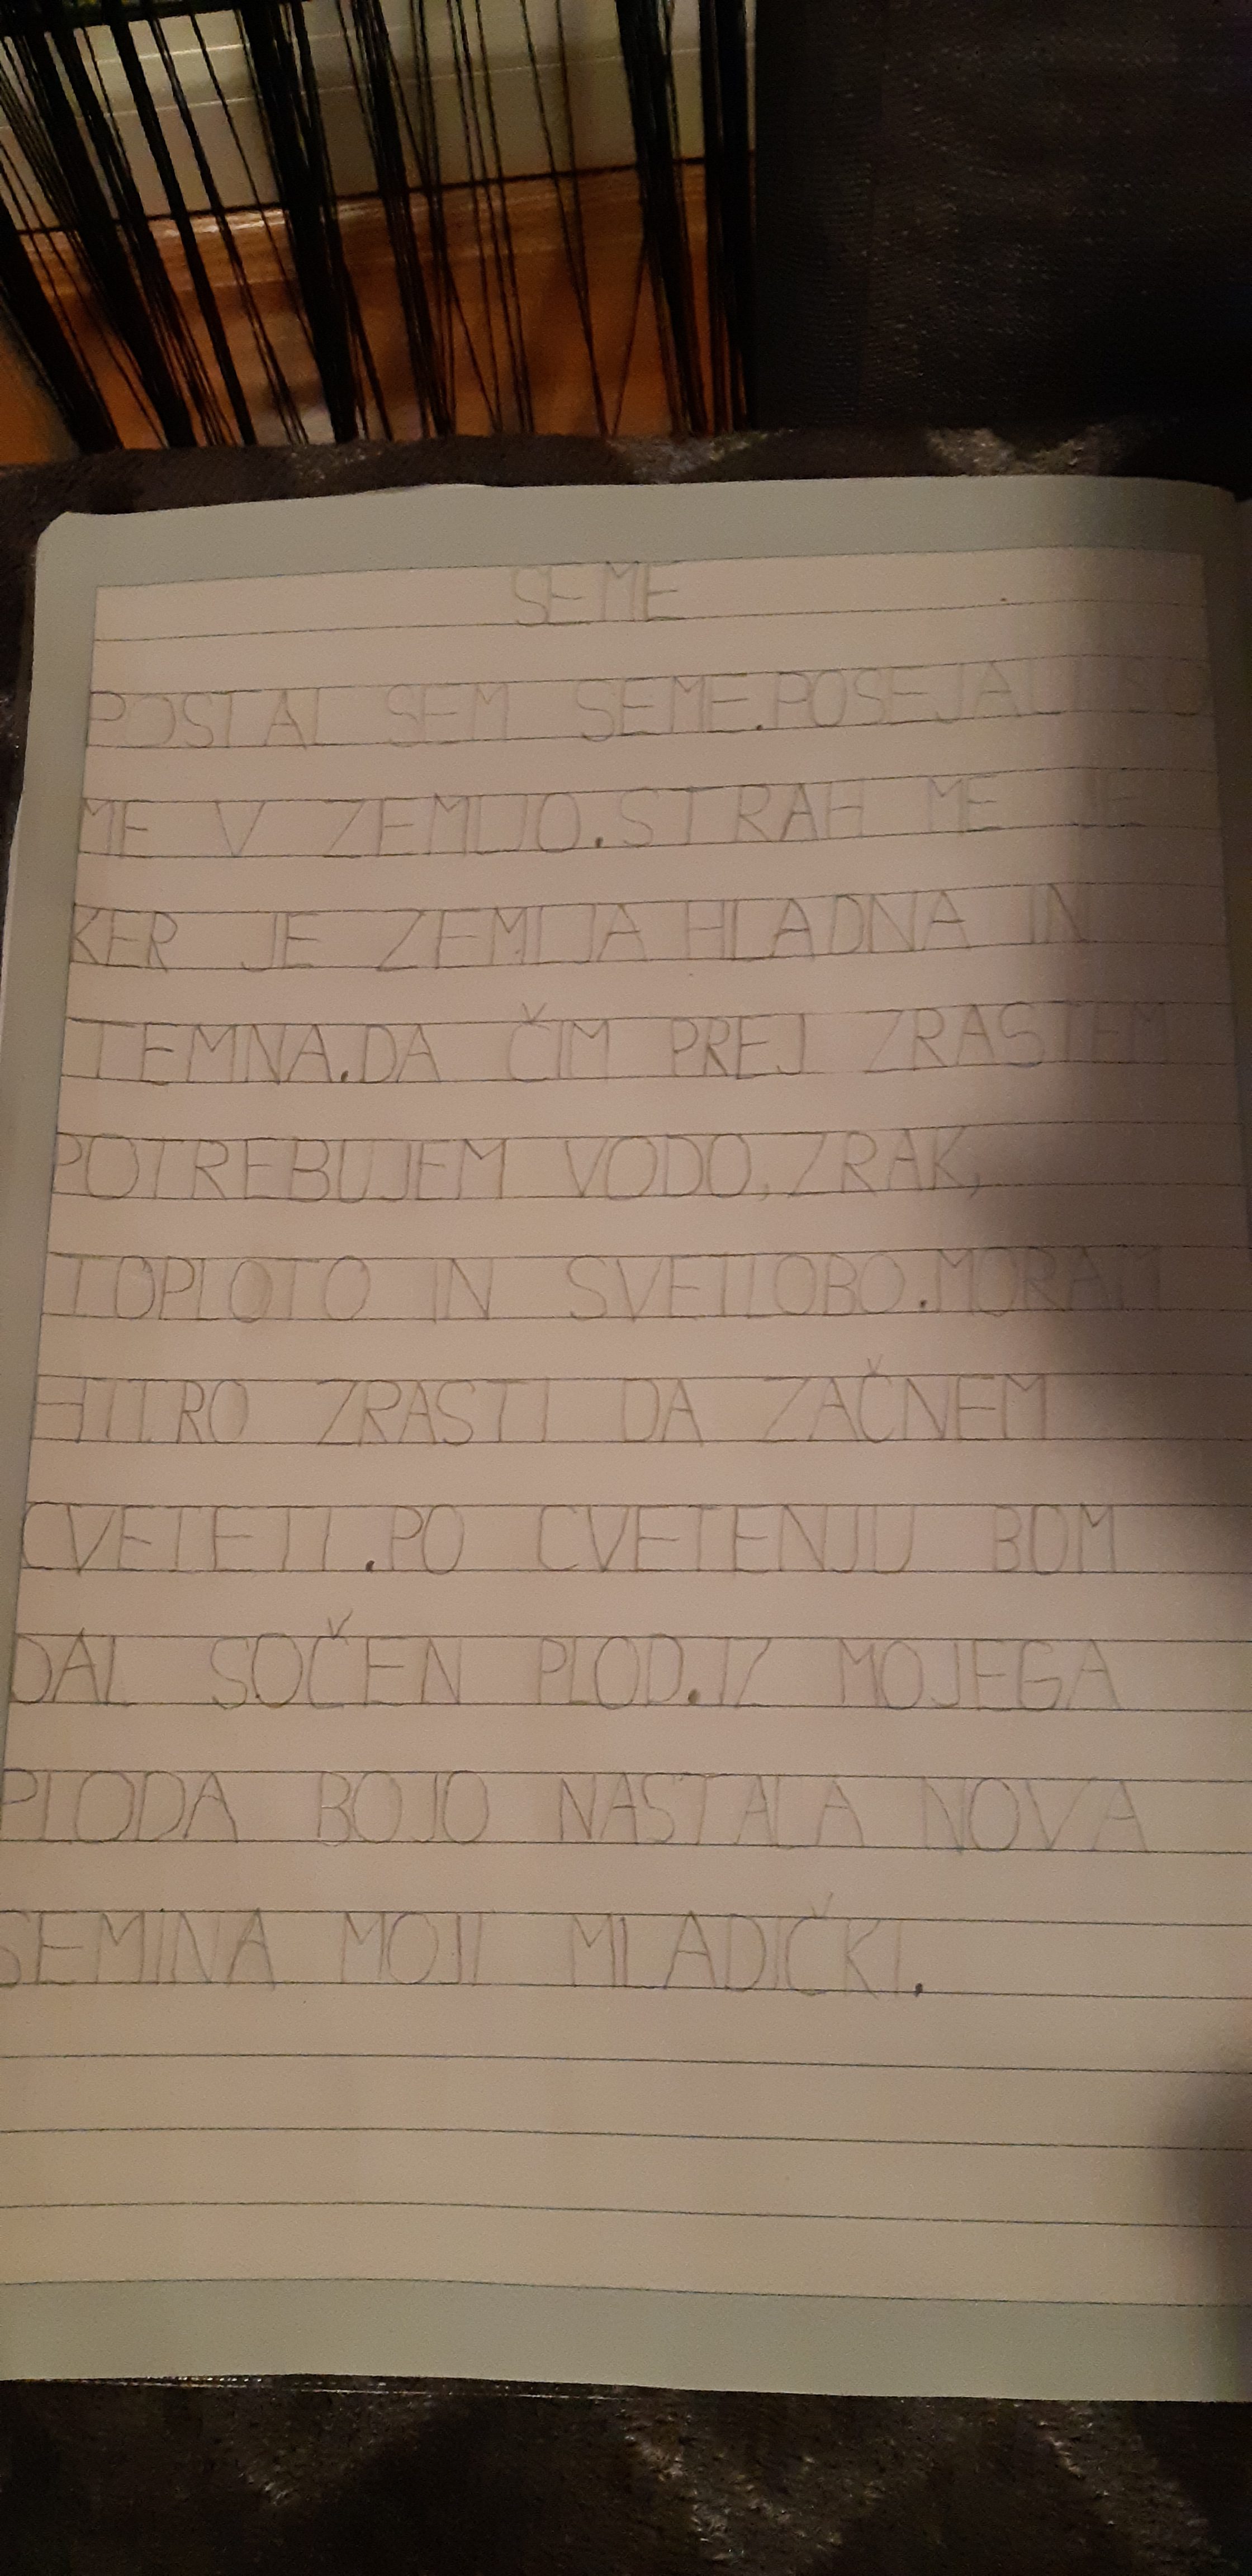 SEME
POSTAL SEM SEME.POSEJALI SO
ME V ZEMLJO.STRAH ME JE
KER JE ZEMLJA HLADNA IN
TEMNA.DA ČIM PREJ ZRASTEM
POTREBUJEM VODO,ZRAK,
TOPLOTO IN SVETLOBO.MORAM
HITRO ZRASTI DA ZAČNEM
CVETETI.PO CVETENJU BOM
DAL SOČEN PLOD.IZ MOJEGA
PLODA BOJO NASTALA NOVA
SEMINA MOJI MLADIČKI.